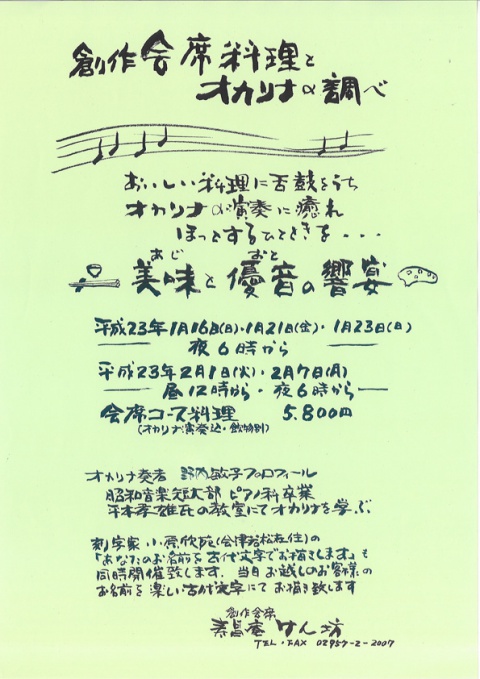 創作会席料理と
オカリナの調べ
おいしい料理に舌鼓をうち
オカリナの演奏に癒れ
ほっとするひとときを・・・
あじ おと
美味と優音の響宴
平成23年1月16日(日)・1月21日(金)・1月23日(日)
夜6時から
平成23年2月1日(火)・2月7日(月)
昼12時から・夜6時から
会席コース料理 5.800円
(オカリナ演奏込・飲物別)
オカリナ奏者 敏子プロフィール
昭和音楽短大部 ピアノ科卒業
平本孝雄氏の教室にてオカリナを学ぶ
刻字家 小原欣苑(会津若松在住)の
「あなたのお名前を古代文字でお描きします」も
同時開催致します。当日お越しのお客様の
お名前を楽しい古代文字にてお描き致します
創作会席
喜昌庵 けん坊
TEL・FAX 02957-2-2007